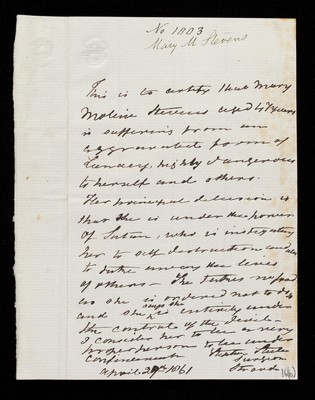 No 1003
Mary M Stevens
This is to certify that Mary
Moline Stevens aged 47 years
is suffering from an
aggravated form of
Lunacy, highly dangerous
to herself and others.
Her principal delusion is
that she is under the power
of Satan, who is instigating
her to self destruction and also
to take away the lives
of others – She takes no food
as she is ordered not to do so
and she says she is entirely under
the control of the Devil.
I consider her to be a very
proper person to be under
confinement
Surgeon
April 29th 1861 Stroud